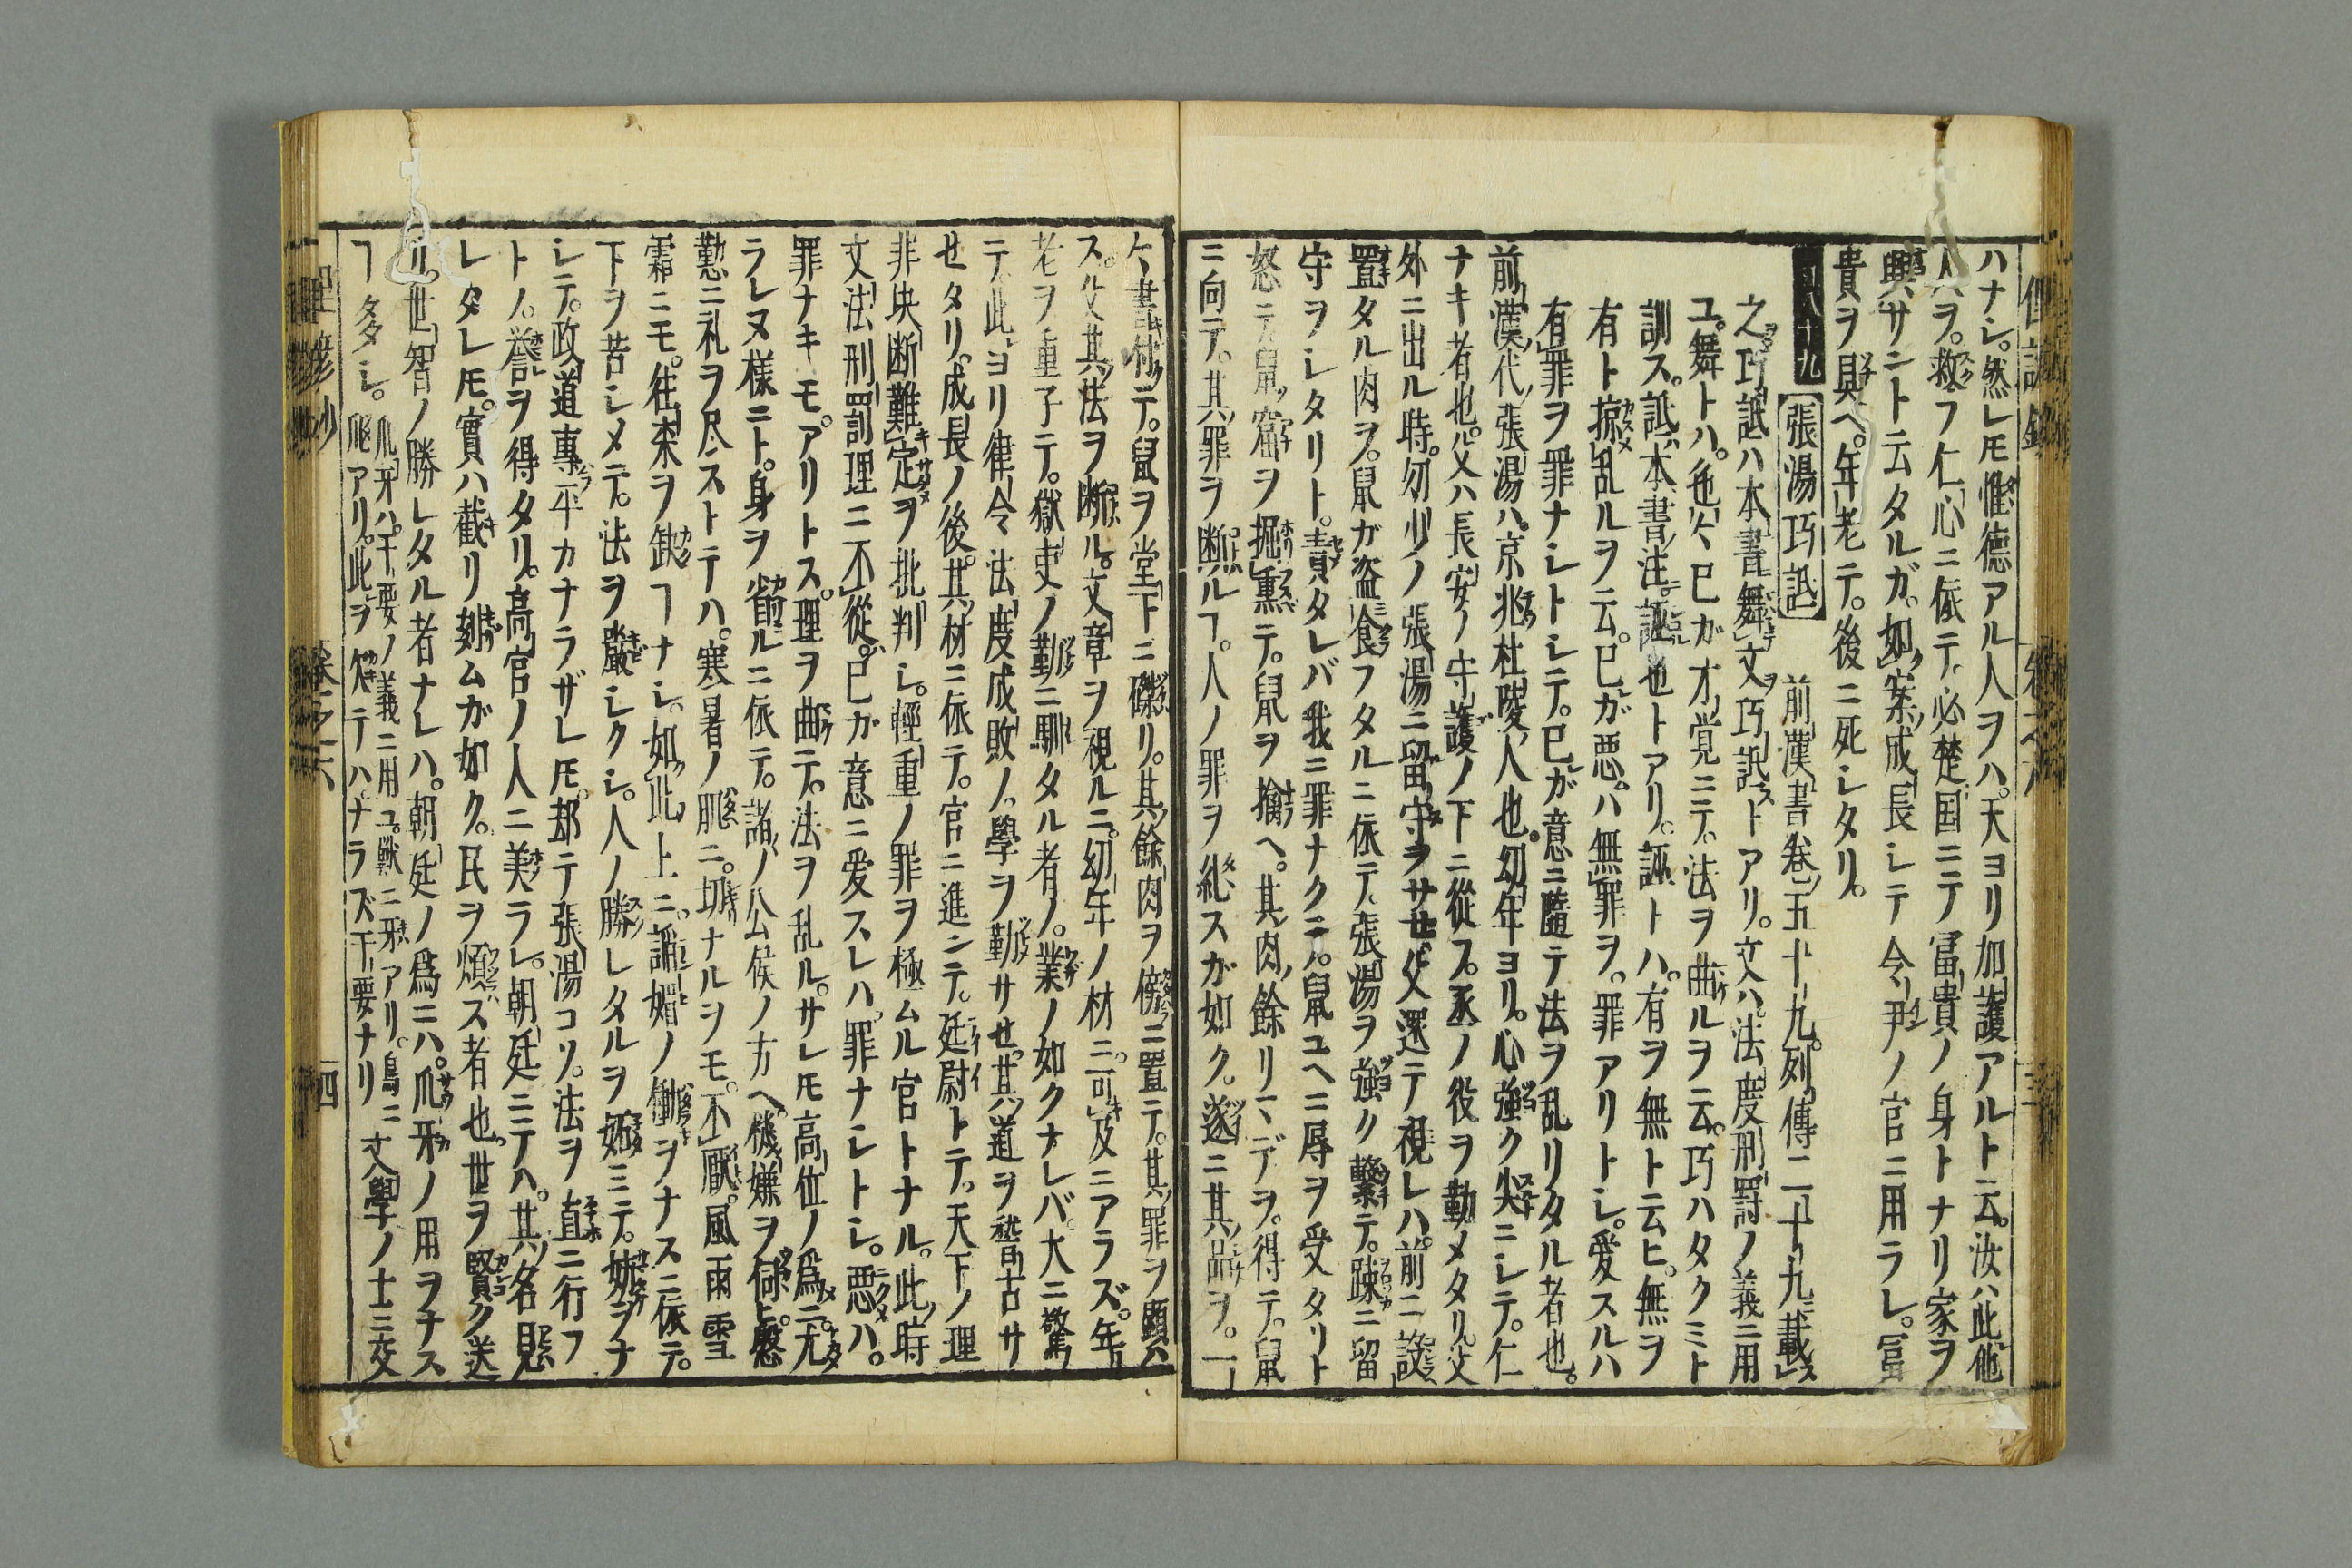 ハナシ。然レ𪜈惟德アル人ヲハ。天ヨリ加護アルト云。汝ハ此他
人ヲ。救フ仁心ニ依テ。必楚国ニテ冨貴ノ身トナリ家ヲ
興サニト云タルガ。如案成長シテ令尹ノ官ニ用ラレ。冨
貴ヲ具ヘ。年老テ。後ニ死シタリ。
百八十九 張湯巧詆 前漢書卷五十九。列傳二十九載
之巧詆ハ本書舞文巧詆トアリ。文ハ法度刑罸ノ義ニ用
ユ。舞トハ。己ガ才覚ニテ。法ヲ曲ルヲ云。巧ハタクミト
訓ス。詆本書注。誣也トアリ。誣トハ。有ヲ無ト云ヒ。無ヲ
有ト掠乱ルヲ云。已ガ悪ハ無罪ヲ。罪アリトシ。愛スルハ
有罪ヲ罪ナシトシテ。已ガ意ニ隨テ法ヲ乱リタル者也。
前漢代張湯ハ。京兆杜陵人也。幼年ヨリ。心強ク尖ニシテ。仁
ナキ者也。父ハ長安ノ守護ノ下ニ從フ。丞ノ役ヲ勤メタリ。父
外ニ出ル時。幼少ノ張湯ニ留守ヲサせ父還テ視レハ。前ニ設
置タル肉ヲ。鼠ガ盗食フタルニ依テ。張湯ヲ強ク繫テ。踈ニ留
守ヲシタリト。責タレバ我ニ罪ナクテ。鼠ユヘニ辱ヲ受タリト
怒ニテ鼠窟ヲ掘熏テ。鼠ヲ擒ヘ。其肉餘リマデヲ。得テ。鼠
ニ向テ。其罪ヲ断ルフ。人ノ罪ヲ糺スガ如ク。遂ニ其品ヲ。一
ケ書付テ。鼠ヲ堂下ニ磔リ。其餘肉ヲ傍ニ置テ。其罪ヲ顕ハ
ス。父其法ヲ断ル。文章ヲ視ルニ。幼年ノ材ニ。可及ニアラズ。年
老ヲ重子テ。獄吏ノ勤ニ馴タル者ノ。業ノ如クナレバ。大ニ驚
テ此ヨリ律令法度成敗ノ。學ヲ勤サせ。其道ヲ嵆古サ
せタリ。成長ノ後。其材ニ依テ。官ニ進ンテ。廷尉トテ。天下ノ理
非块断難定ヲ批判シ。軽重ノ罪ヲ極ムル官トナル。此時
文法刑罰理ニ不從。已ガ意ニ爱スレハ。罪ナシトシ。悪ハ。
罪ナキモ。アリトス。理ヲ曲テ。法ヲ乱ル。サレ𪜈高位ノ爲ニ。尤
ラレヌ様ニト。身ヲ省ルニ依テ。諸ノ公侯ノ方ヘ。機嫌ヲ伺ヒ。慇
懃ニ礼ヲ尽ストテハ。寒暑ノ肥ニ。切ナルヲモ。不厭。風雨雪
霜ニモ。往来ヲ缺フナシ。如此上ニ。諂媚ノ働ヲナスニ依テ。
下ヲ苦シメテ。法ヲ嚴シクシ。人ノ勝レタルヲ妬ミテ。妨ヲナ
シテ。政道專平カナラザレ𪜈。却テ張湯コソ。法ヲ直ニ行フ
トノ。誉ヲ得タリ。高官ノ人ニ美ラレ。朝廷ニテハ。其名見
レタレ𪜈。實ハ截リ刻ムガ如ク。民ヲ煩ス者也。世ヲ賢ク送
リ。世智ノ勝レタル者ナレハ。朝廷ノ爲ニハ。爪牙ノ用ヲナス
フ多シ。爪牙ハ。干要ノ義ニ用ユ。獣ニ牙アリ。鳥ニ
爪アリ。此ヲ欠テハ。ナラズ干要ナリ 文學ノ士ニ交
四